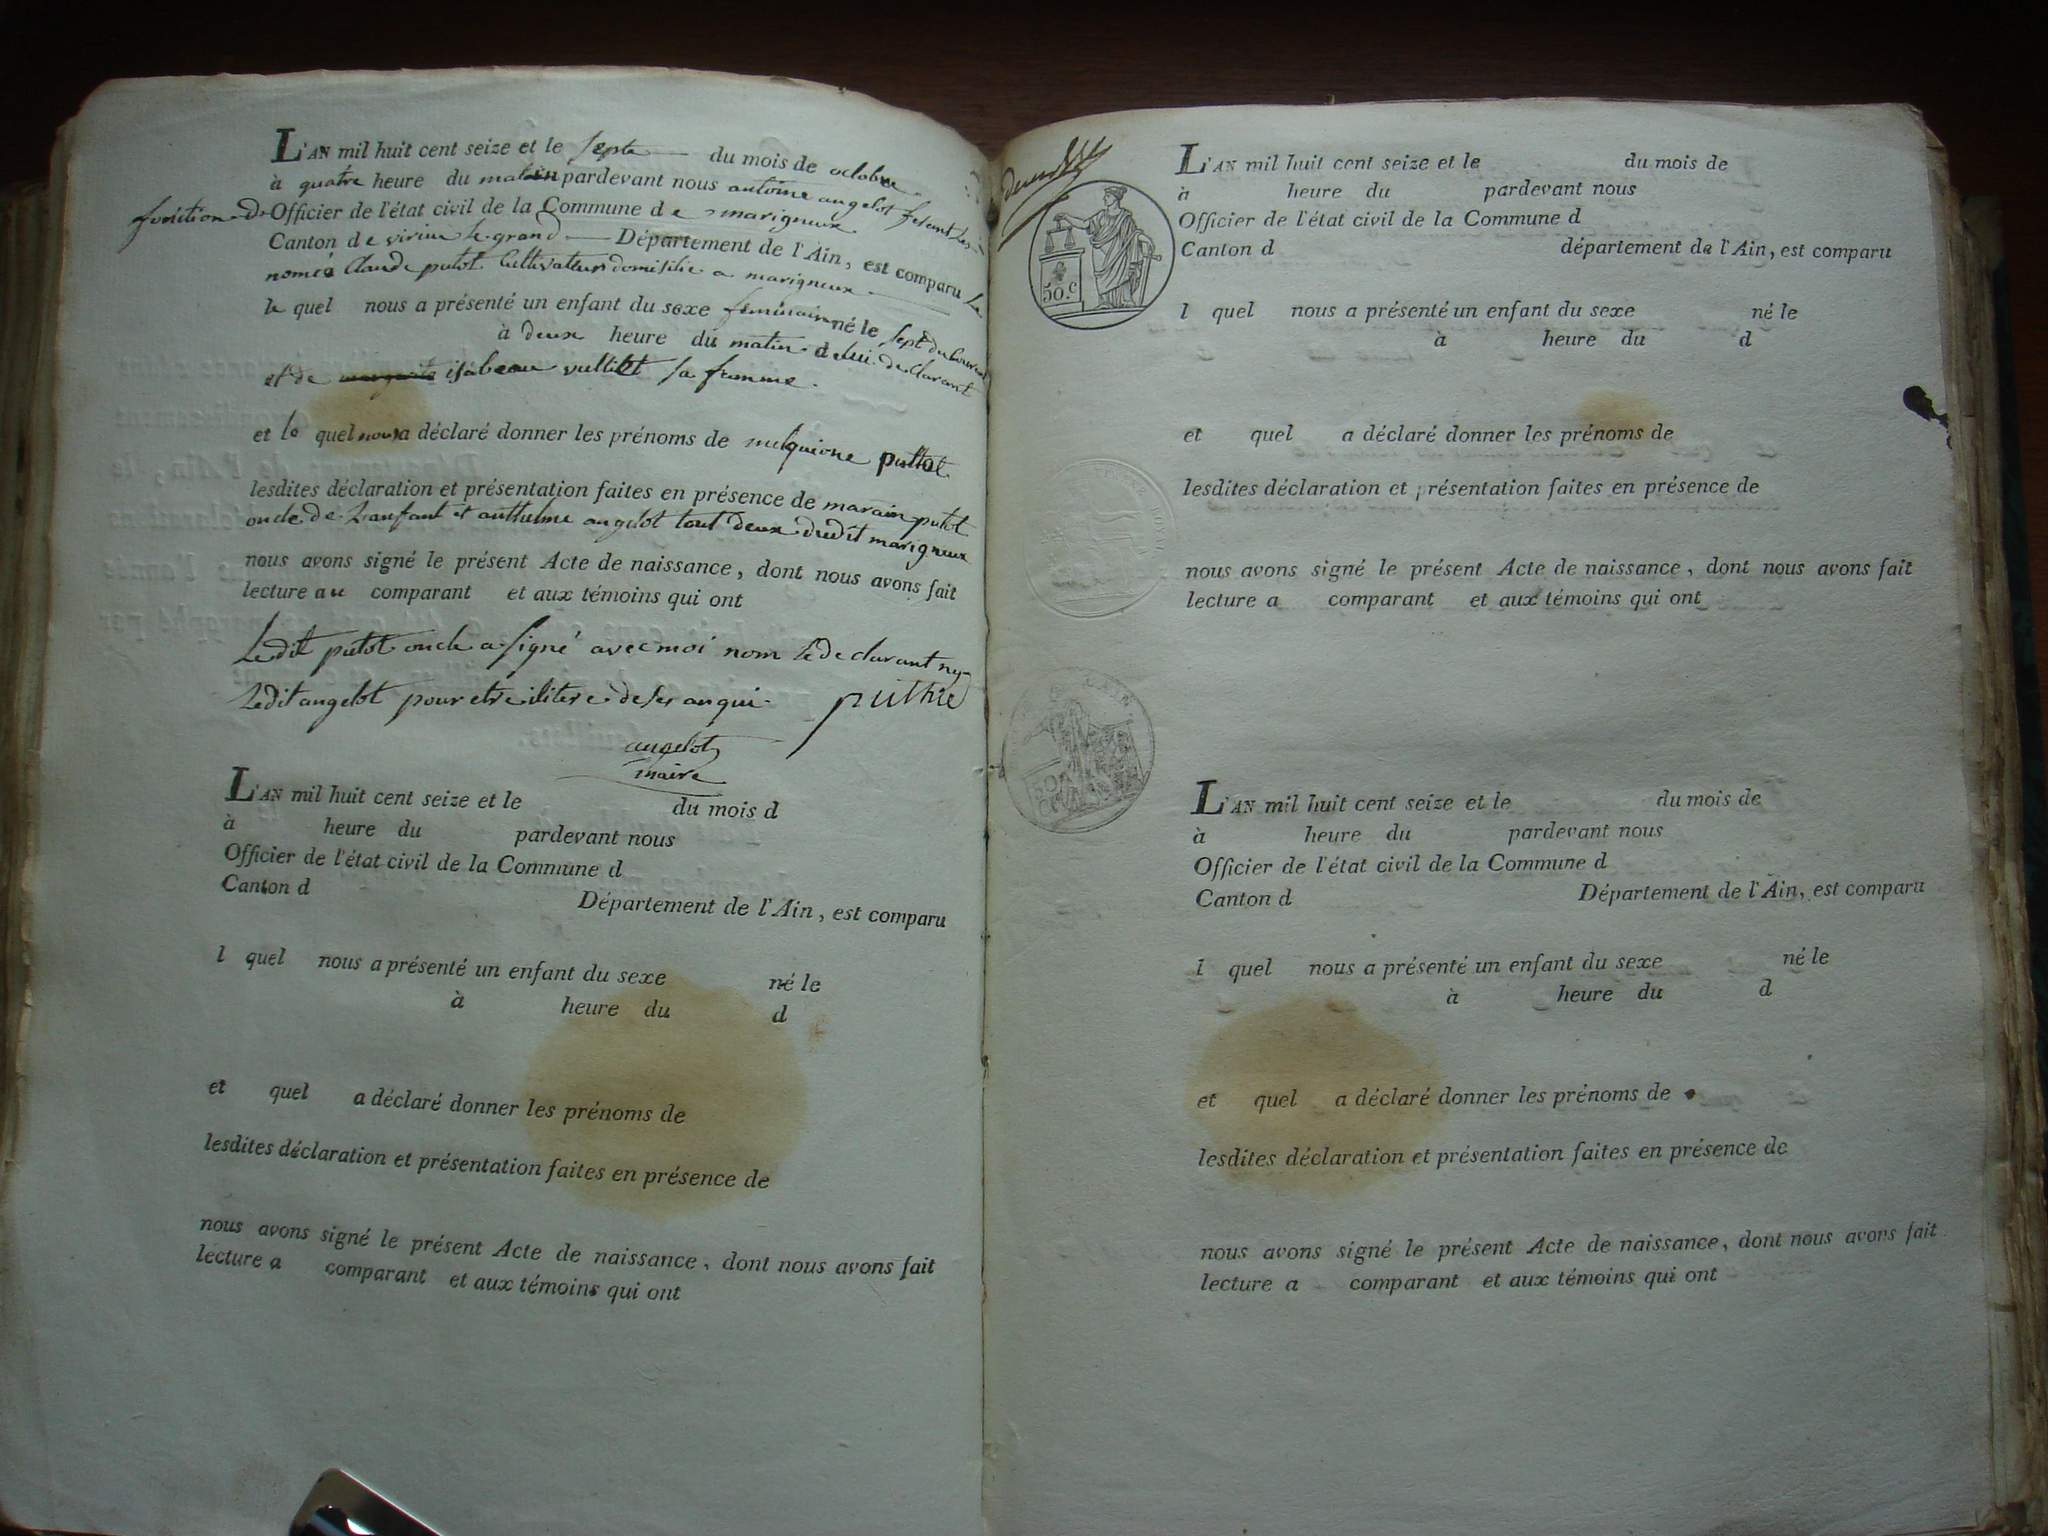 L'AN mil huit cent seize et le septe du mois de octobre
à quatre heure du matin pardevant nous antoine angelot fesant les
fonction d. Officier de l'état civil de la Commune d e marigneux
Canton d e virieu le grand Département de l'Ain, est comparu le
només Claude putot Cultivateur domisilie a marigneux
le quel nous a présenté un enfant du sexe né le sept du courant
à deux heure du matin d elui declarant
et de isabeau vullilet sa framme.
et le quel nous a déclaré donner les prénoms de melquione puttot
lesdites déclaration et présentation faites en présence de marain putot
oncle de Lanfant et anthelme angelot tout deux dudit marigneux
nous avons signé le présent Acte de naissance, dont nous avons fait
lecture au comparant et aux témoins qui ont
Le dit putot oncle a signé avec moi nom le declarant ny
Ledit angelot pour etre ilitere de ses anqui. puthie
angelot
maire
L'AN mil huit cent seize et le du mois d
à heure du pardevant nous
Officier de l'état civil de la Commune d
Canton d Département de l'Ain, est comparu
l quel nous a présenté un enfant du sexe né le
à heure du d
et quel a déclaré donner les prénoms de
lesdites déclaration et présentation faites en présence de
nous avons signé le présent Acte de naissance, dont nous avons fait
lecture a comparant et aux témoins qui ont
50.c
L'AN mil huit cent seize et le du mois de
à heure du pardevant nous
Officier de l'état civil de la Commune d
Canton d département de l'Ain, est comparu
l quel nous a présenté un enfant du sexe né le
à heure du d
et quel a déclaré donner les prénoms de
lesdites déclaration et présentation faites en présence de
nous avons signé le présent Acte de naissance, dont nous avons fait
lecture a comparant et aux témoins qui ont
L'AN mil huit cent seize et le du mois de
à heure du pardevant nous
Officier de l'état civil de la Commune d
Canton d Département de l'Ain, est comparu
l quel nous a présenté un enfant du sexe né le
à heure du d
et quel a déclaré donner les prénoms de
lesdites déclaration et présentation faites en présence de
nous avons signé le présent Acte de naissance, dont nous avons fait
lecture a comparant et aux témoins qui ont